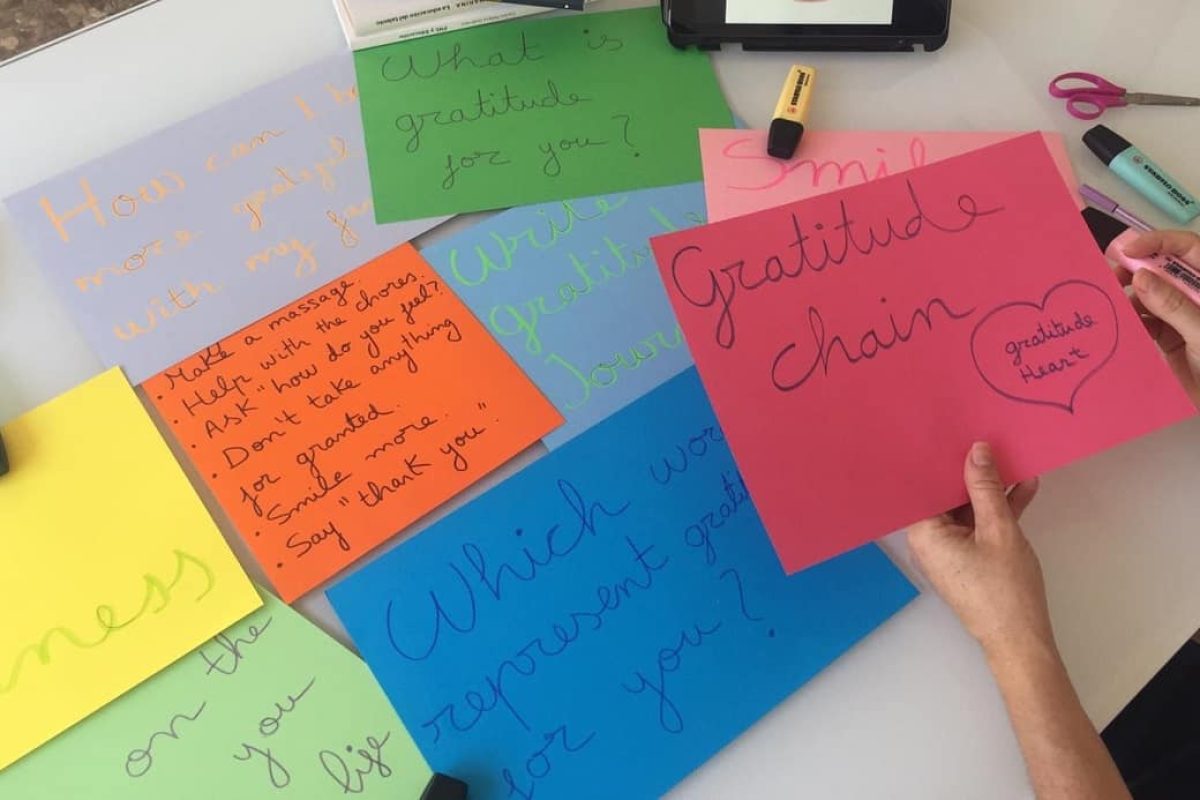 La educación del talento
What is
gratitude
for you?
How can I be
more grateful
with my
Write
gratitude
Jour
Smil
STABILO BOSS
STABILO BOSS
Gratitude
chain
gratitude
Heart
Make a massage.
• Help with the chores.
• Ask "how do you feel?"
• Don't take anything
for granted.
• Smile more.
• Say "thank you".
Which wor
represent grati
for you?
ness
on the
you
life